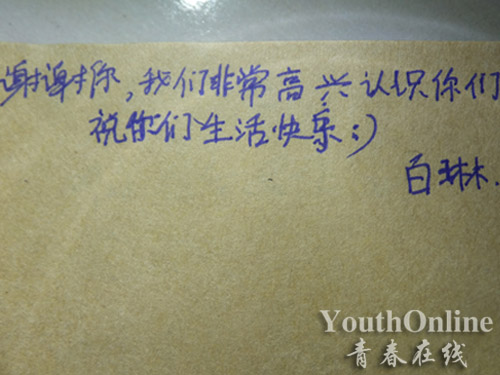 谢谢你,我们非常高兴认识你们
祝你们生活快乐:)
白琳.
YouthOnline
青春在线